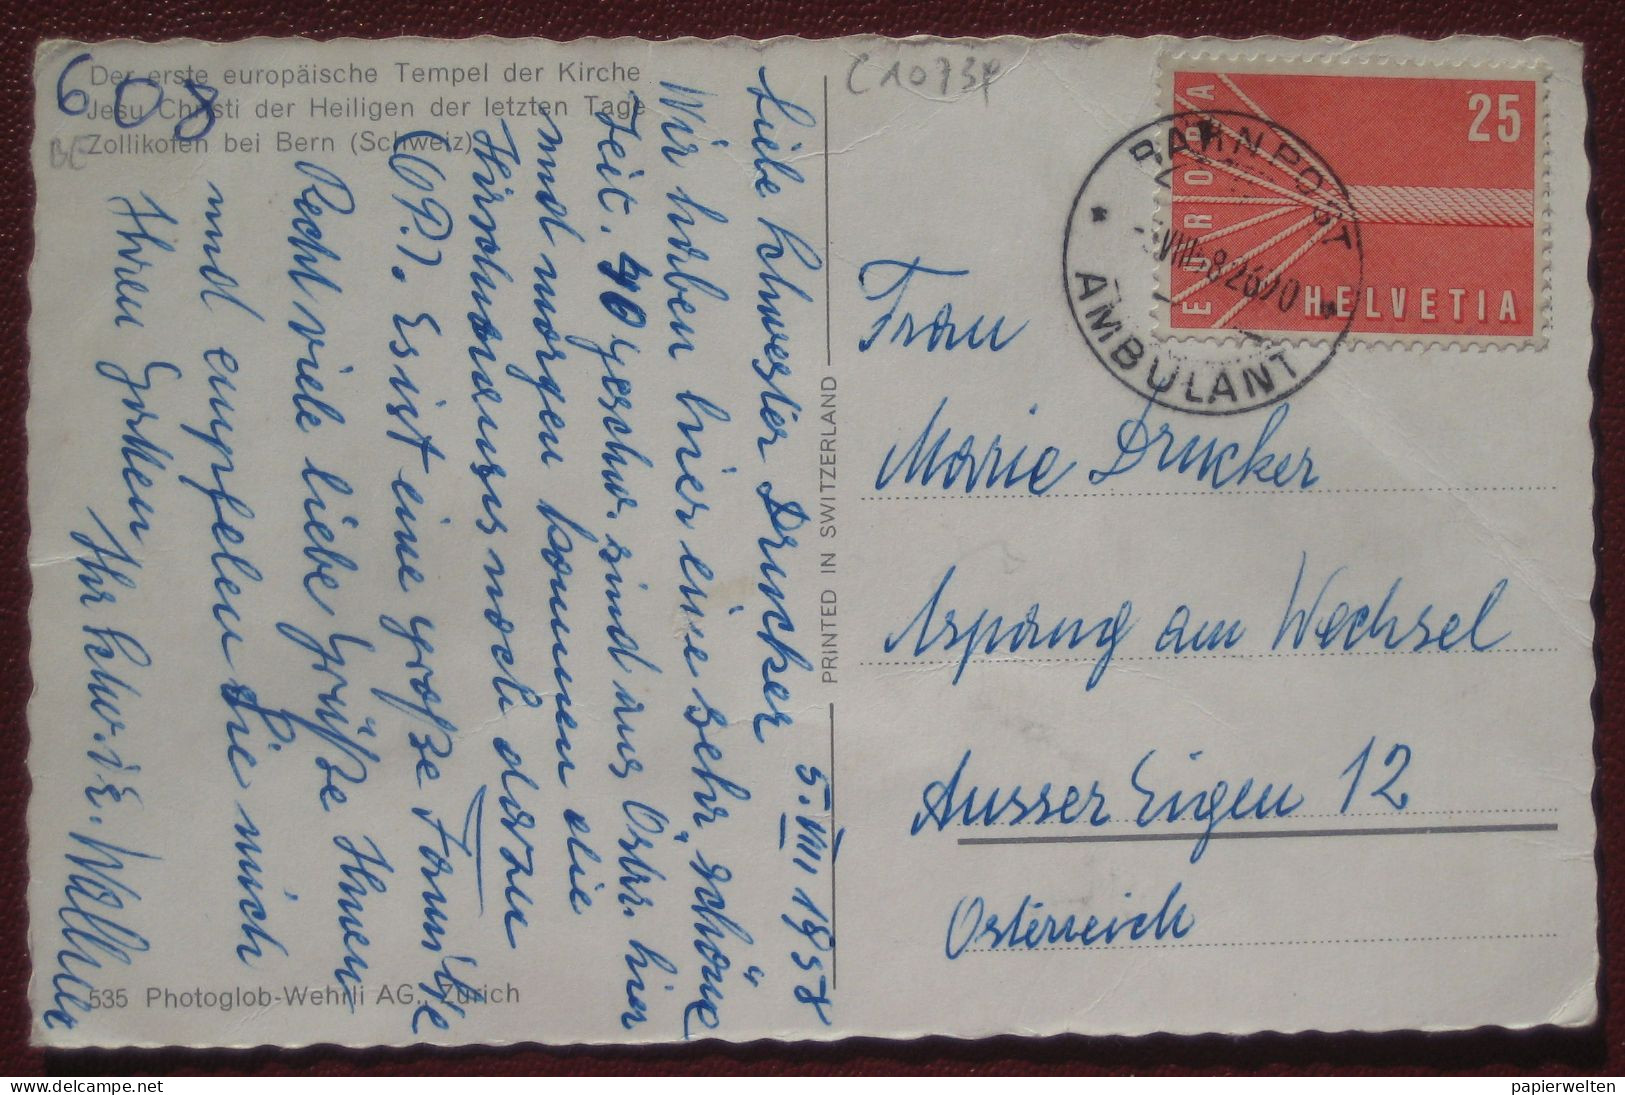 608
Der erste europäische Tempel der Kirche
Jesu Christi der Heiligen der letzten Tage
Zollikofen bei Bern (Schweiz)
BE
C1073
5. VIII 1958
Liebe Schwester Drucker
Wir haben hier eine sehr schöne
Zeit. 40 Geschw. sind aus Östrr. hier
und morgen kommen die
noch dazu
Es ist eine große Familie
Recht viele liebe Grüße Ihnen
und empfelen Sie mich
Ihren Gatten
Ihr
535 Photoglob-Wehrli AG., Zürich
PRINTED IN SWITZERLAND
EUROPA
25
HELVETIA
BAHNPOST
AMBULANT
Frau
Marie Drucker
Aspang am Wechsel
Ausser Eigen 12
Österreich
papierwelten